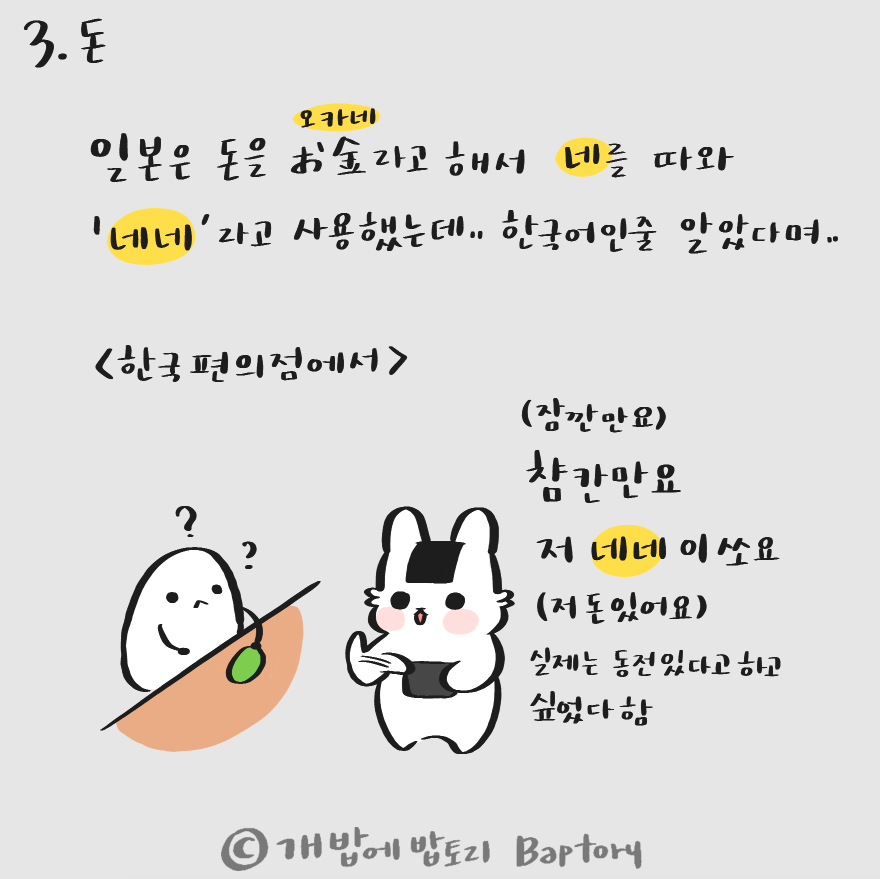 3. 돈
오카네
일본은 돈을 お金라고 해서 네를 따와
'네네'라고 사용했는데.. 한국어인줄 알았다며..
<한국 편의점에서>
(잠깐만요)
참칸만요
저 네네 이쏘요
(저 돈있어요)
실제는 동전있다고하고
싶었다함
? ?
© 개밥에 밥토리 Baptory